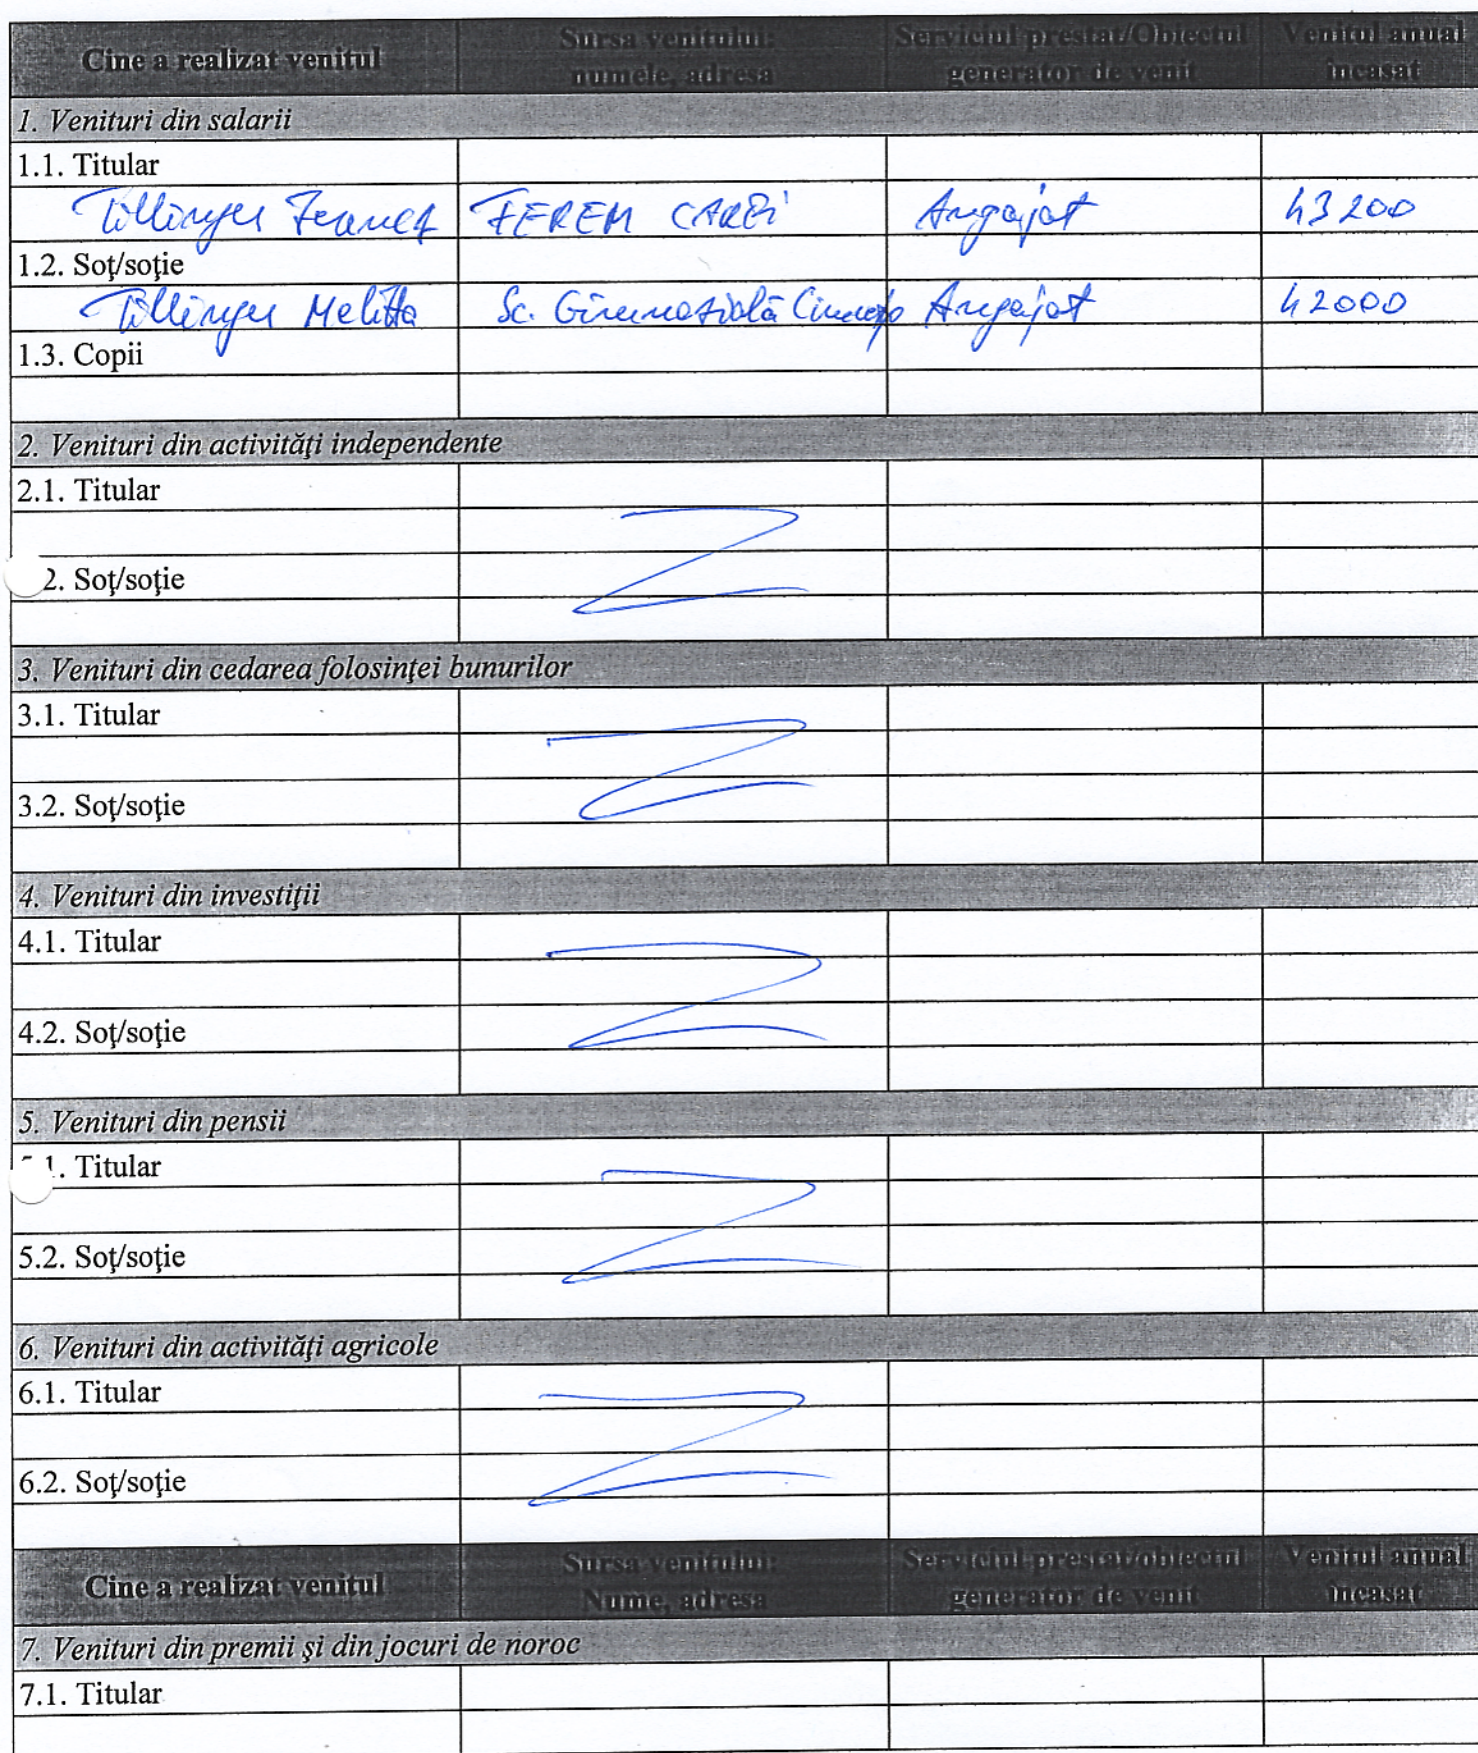 Cine a realizat venitul Sursa venitului: numele, adresa Serviciul prestat/Obiectul generator de venit Venitul anual încasat
1. Venituri din salarii
1.1. Titular
FEREM Angajat 43200
1.2. Soţ/soţie
Melitta Sc. Gimnazială Angajat 42000
1.3. Copii
2. Venituri din activităţi independente
2.1. Titular
2. Soţ/soţie
3. Venituri din cedarea folosinţei bunurilor
3.1. Titular
3.2. Soţ/soţie
4. Venituri din investiţii
4.1. Titular
4.2. Soţ/soţie
5. Venituri din pensii
1. Titular
5.2. Soţ/soţie
6. Venituri din activităţi agricole
6.1. Titular
6.2. Soţ/soţie
Cine a realizat venitul Sursa venitului: Nume, adresa Serviciul prestat/obiectul generator de venit Venitul anual încasat
7. Venituri din premii şi din jocuri de noroc
7.1. Titular